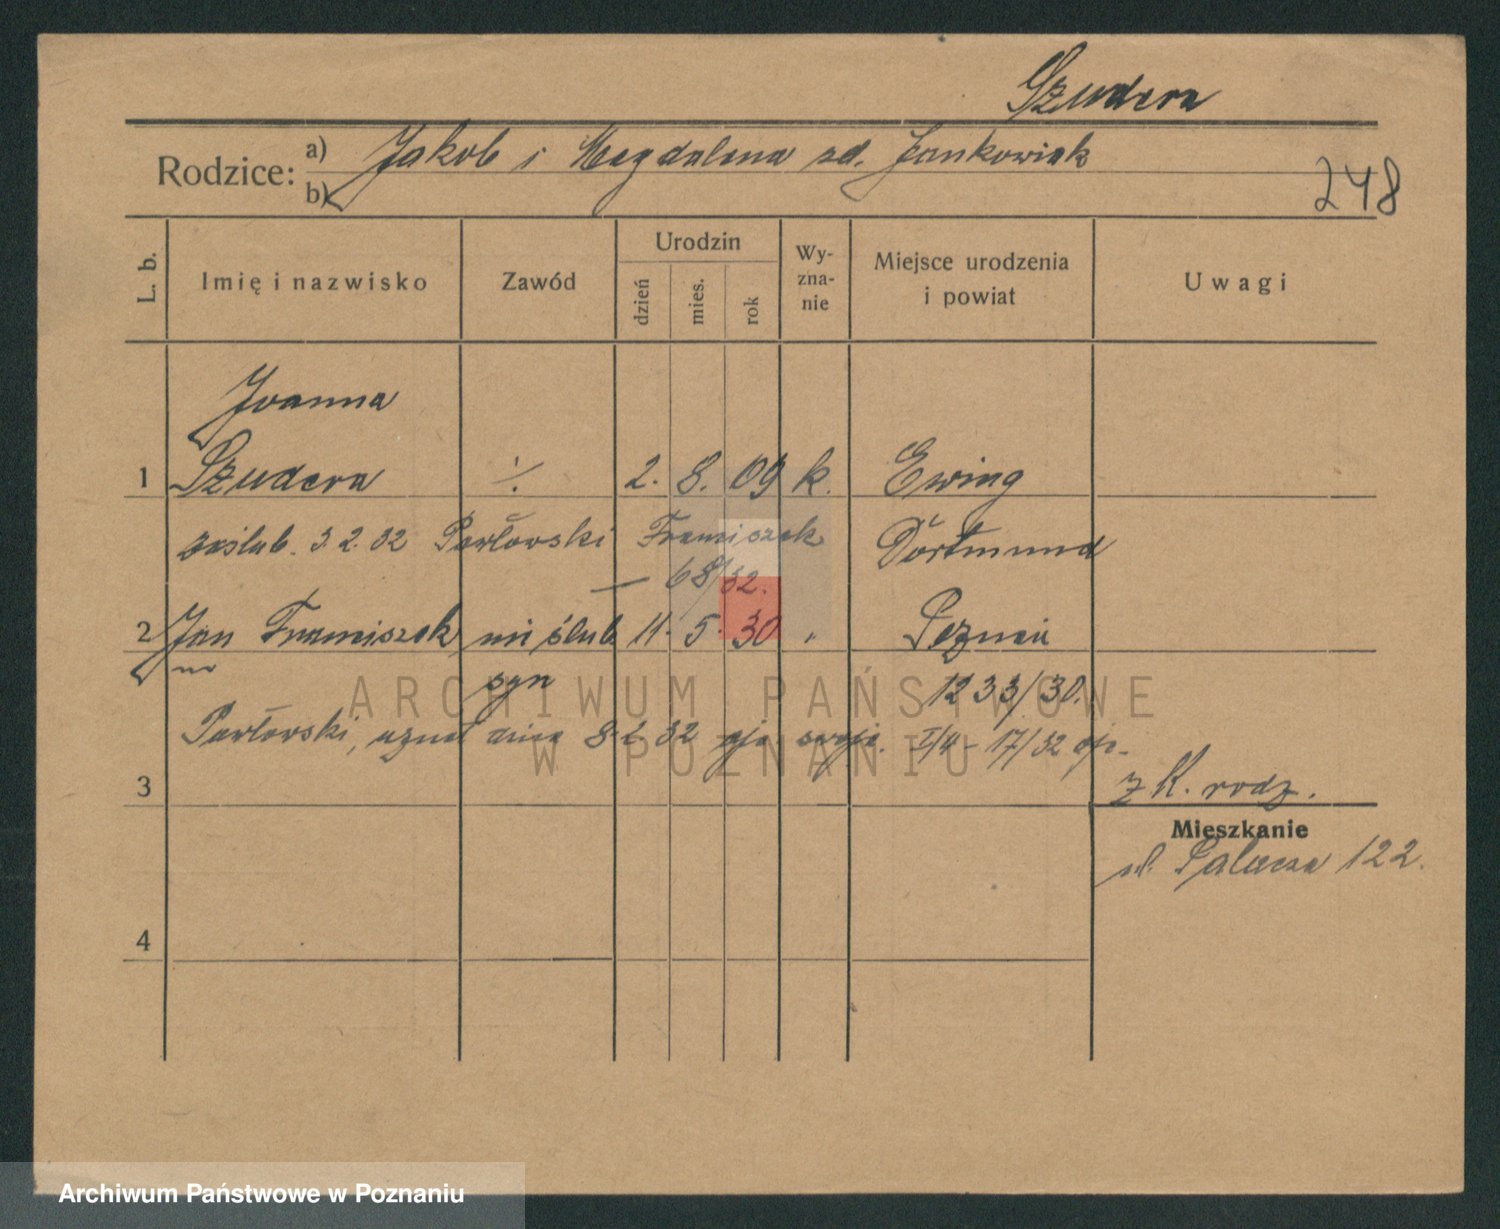 Szudera
Rodzice: a) Jakob i Magdalena zd. Jankowiak
b)
248
L. b.
Imię i nazwisko
Zawód
Urodzin
dzień
mies.
rok
Wy-
zna-
nie
Miejsce urodzenia
i powiat
Uwagi
Joanna
1 Szudera ./. 2. 8. 09 k. Ewing
zaślub. 3.2.32 Pawłowski Franciszek Dortmund
— 68/32.
2 Jan Franciszek nieślub 11. 5. 30 " Poznań
syn 1233/30.
Pawłowski, uznał dnia 8.2.32 swoje. I/4 - 17/32
3
z K. rodz.
Mieszkanie
ul. Palacza 122.
4
ARCHIWUM PAŃSTWOWE
W POZNANIU
Archiwum Państwowe w Poznaniu